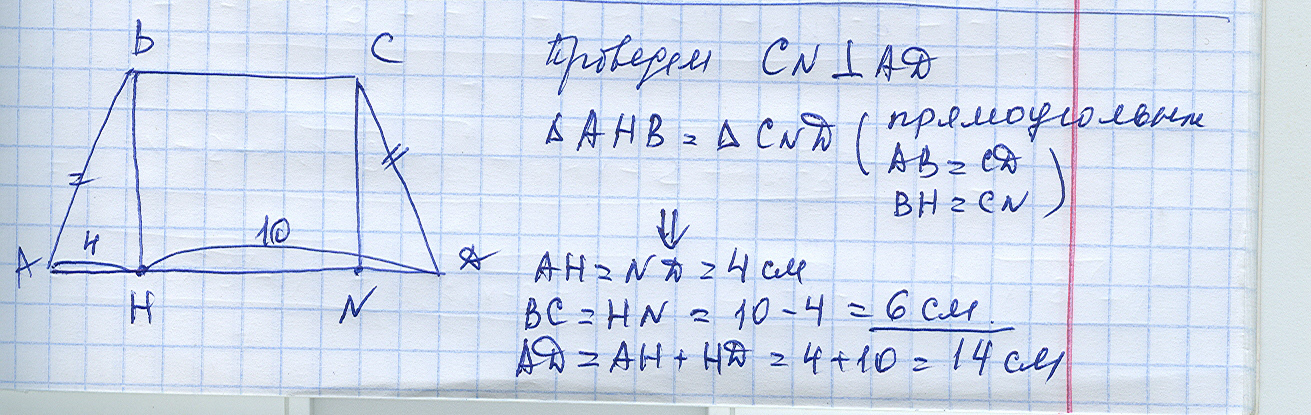 B
C
4
10
A
D
H
N
Проведем CN⊥AD
Δ AHB = Δ CND (прямоугольн
AB = CD
BH = CN)
⇓
AH = ND = 4 см
BC = HN = 10 - 4 = 6 см.
AD = AH + HD = 4 + 10 = 14 см